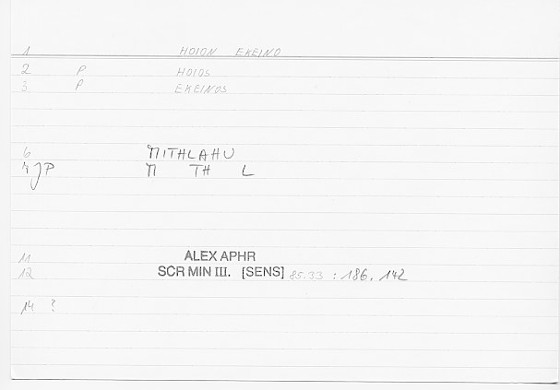 1 HOION EKEINO
2 P HOIOS
3 P EKEINOS
6 MITHLAHU
P M TH L
11 ALEX APHR
12 SCR MIN III. [SENS] 85.33 : 186, 142
14 ?